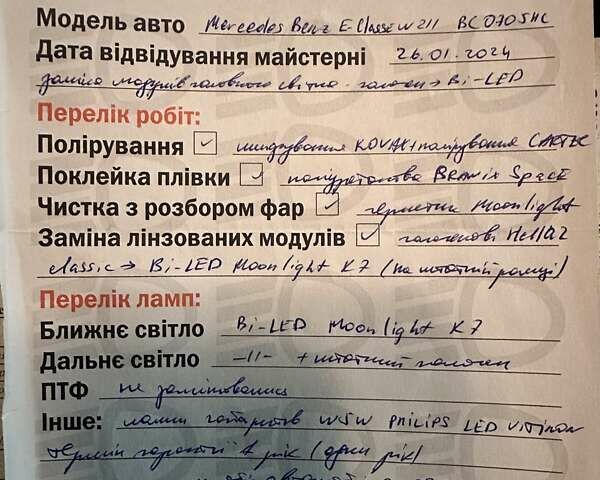 Модель авто Mercedes Benz E-Classe W211 BC0705HC
Дата відвідування майстерні 26.01.2024
заміна модулів головного світла галоген → Bi-LED
Перелік робіт:
Полірування ✓ шліфування KOVAX + полірування CARTEC
Поклейка плівки ✓ поліуретанова BRONIX SPACE
Чистка з розбором фар ✓ герметик Moonlight
Заміна лінзованих модулів ✓ галогенові Hella 2
classic → Bi-LED Moonlight K7 (на штатній рамці)
Перелік ламп:
Ближнє світло Bi-LED Moonlight K7
Дальнє світло -11- + штатний галоген
ПТФ не замінювались
Інше: лампи габаритів W5W PHILIPS LED Vision
термін гарантії 1 рік (один рік)